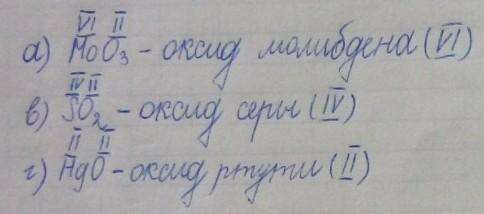 а) MoO₃ - оксид молибдена (VI)
в) SO₂ - оксид серы (IV)
г) HgO - оксид ртути (II)